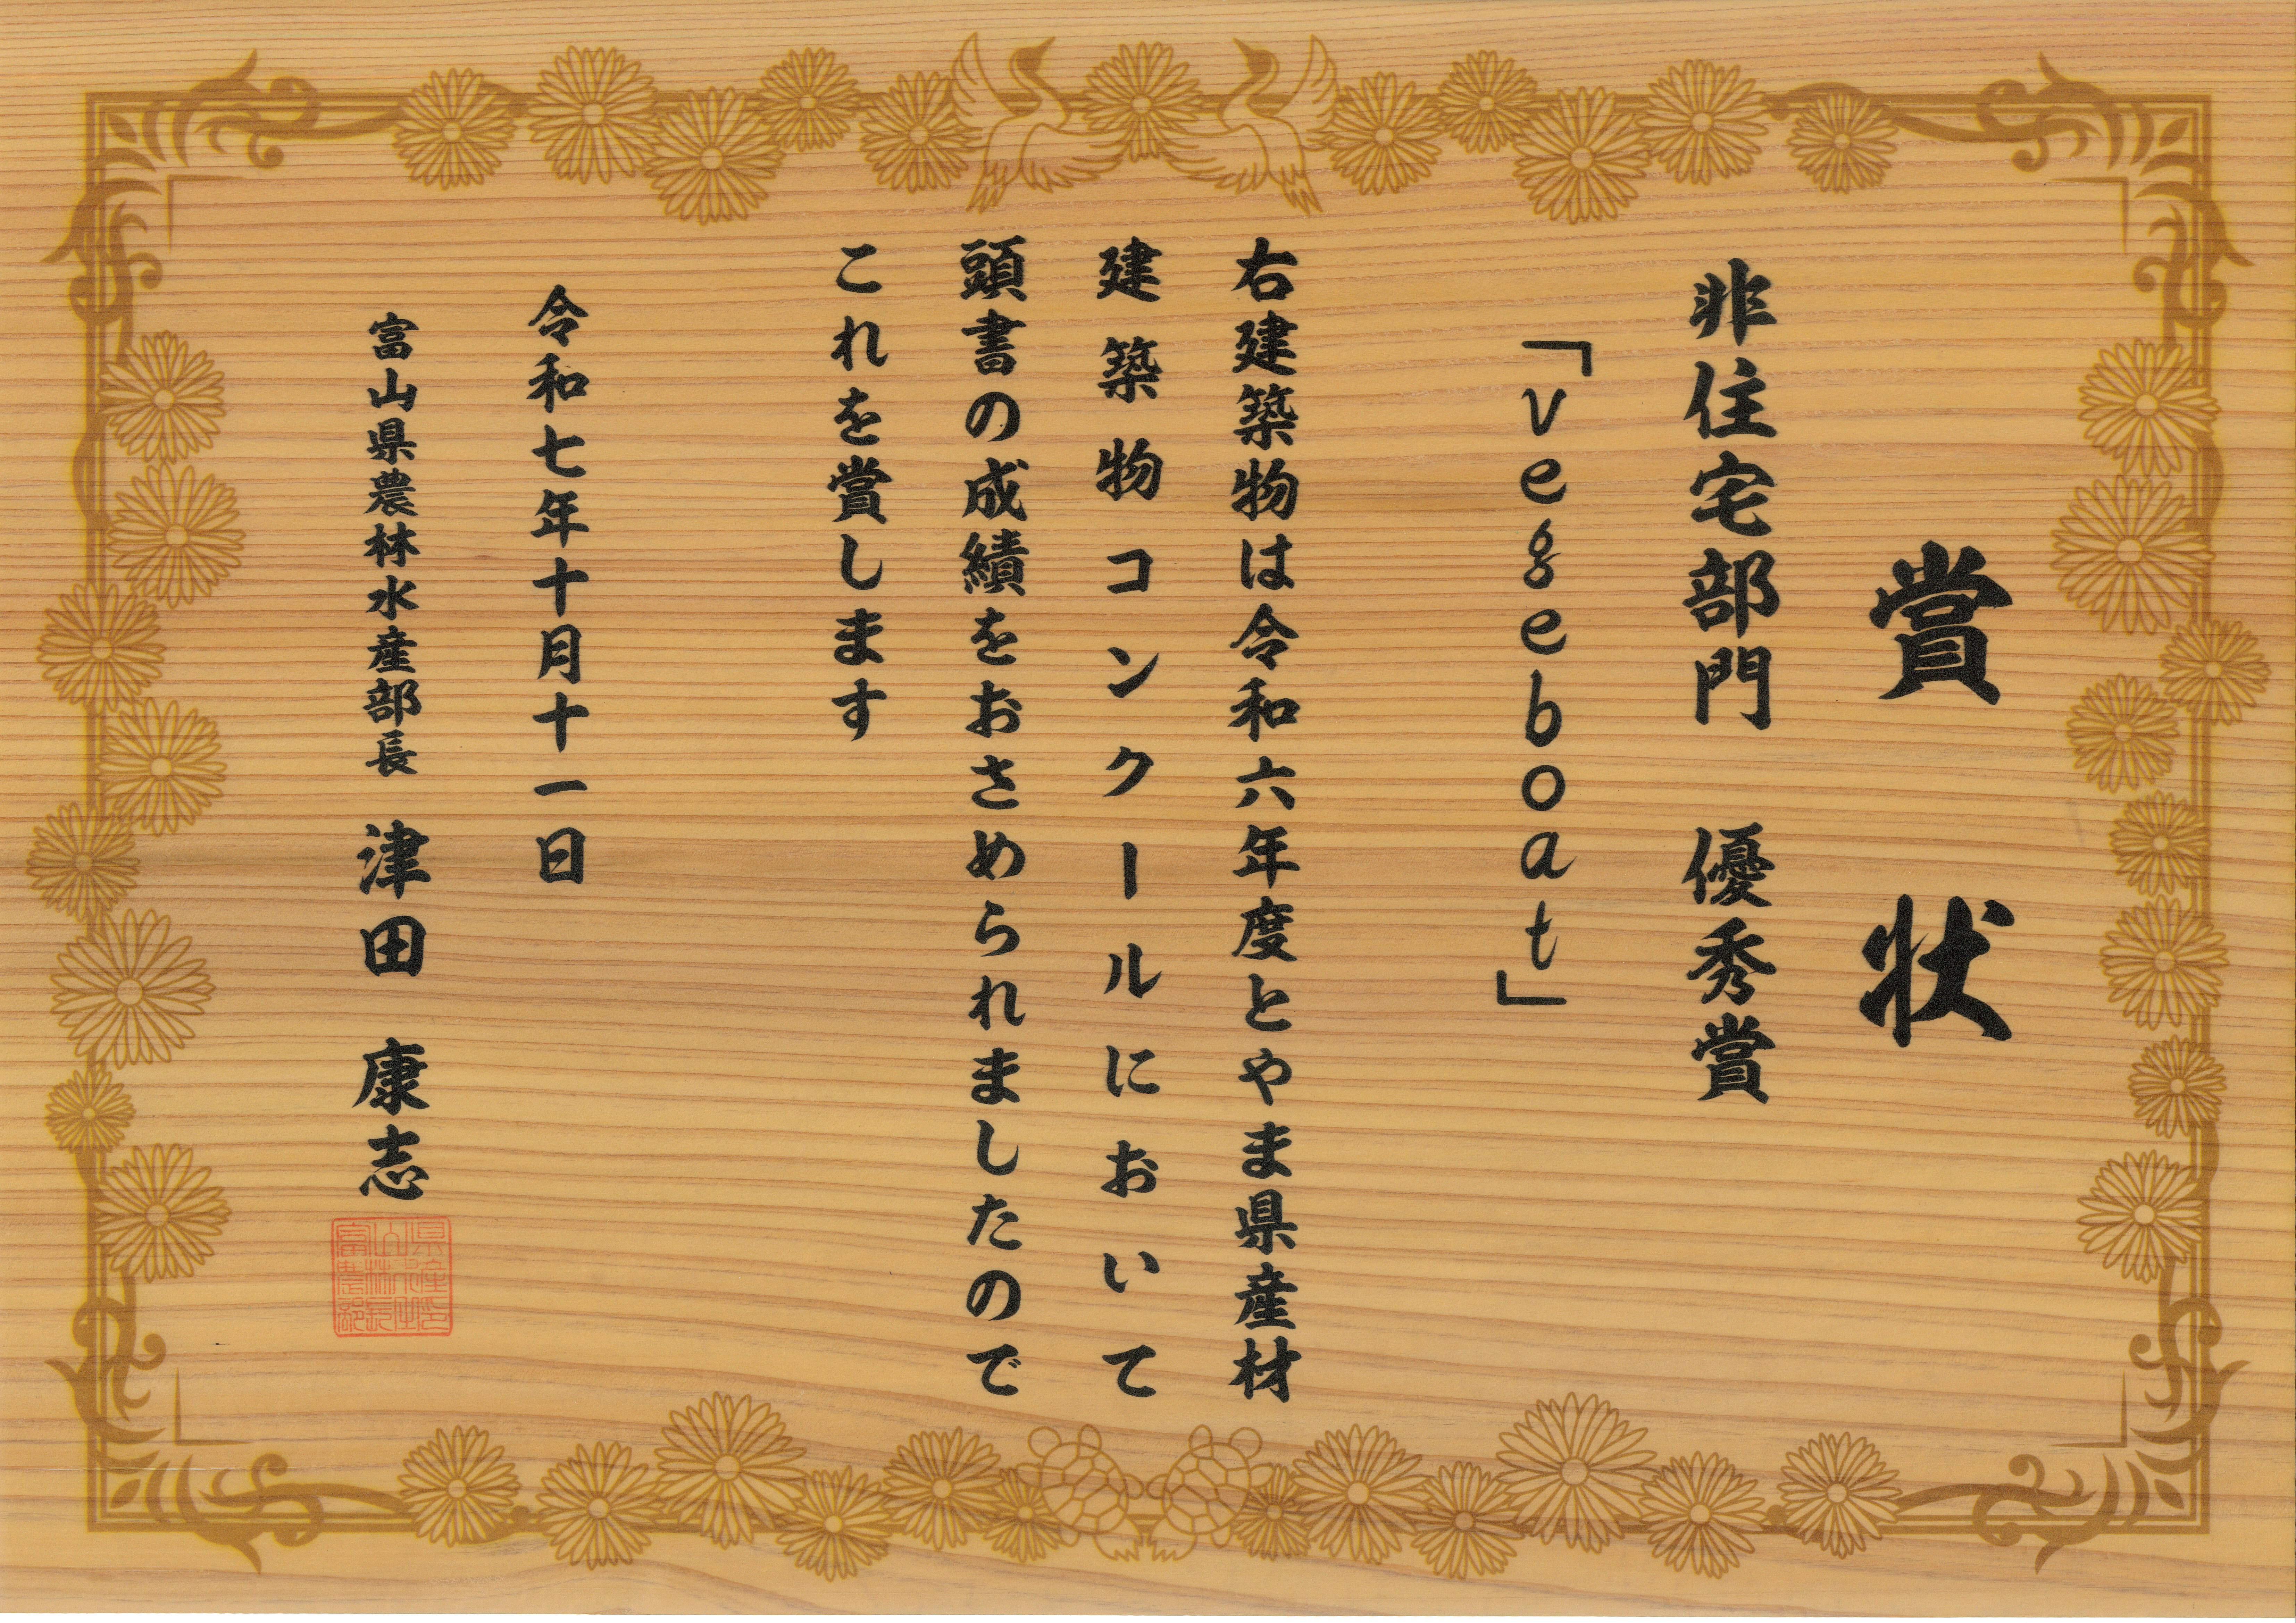 賞状
非住宅部門　優秀賞
「vegeboat」
右建築物は令和六年度とやま県産材
建築物コンクールにおいて
頭書の成績をおさめられましたので
これを賞します
令和七年十月十一日
富山県農林水産部長　津田　康志